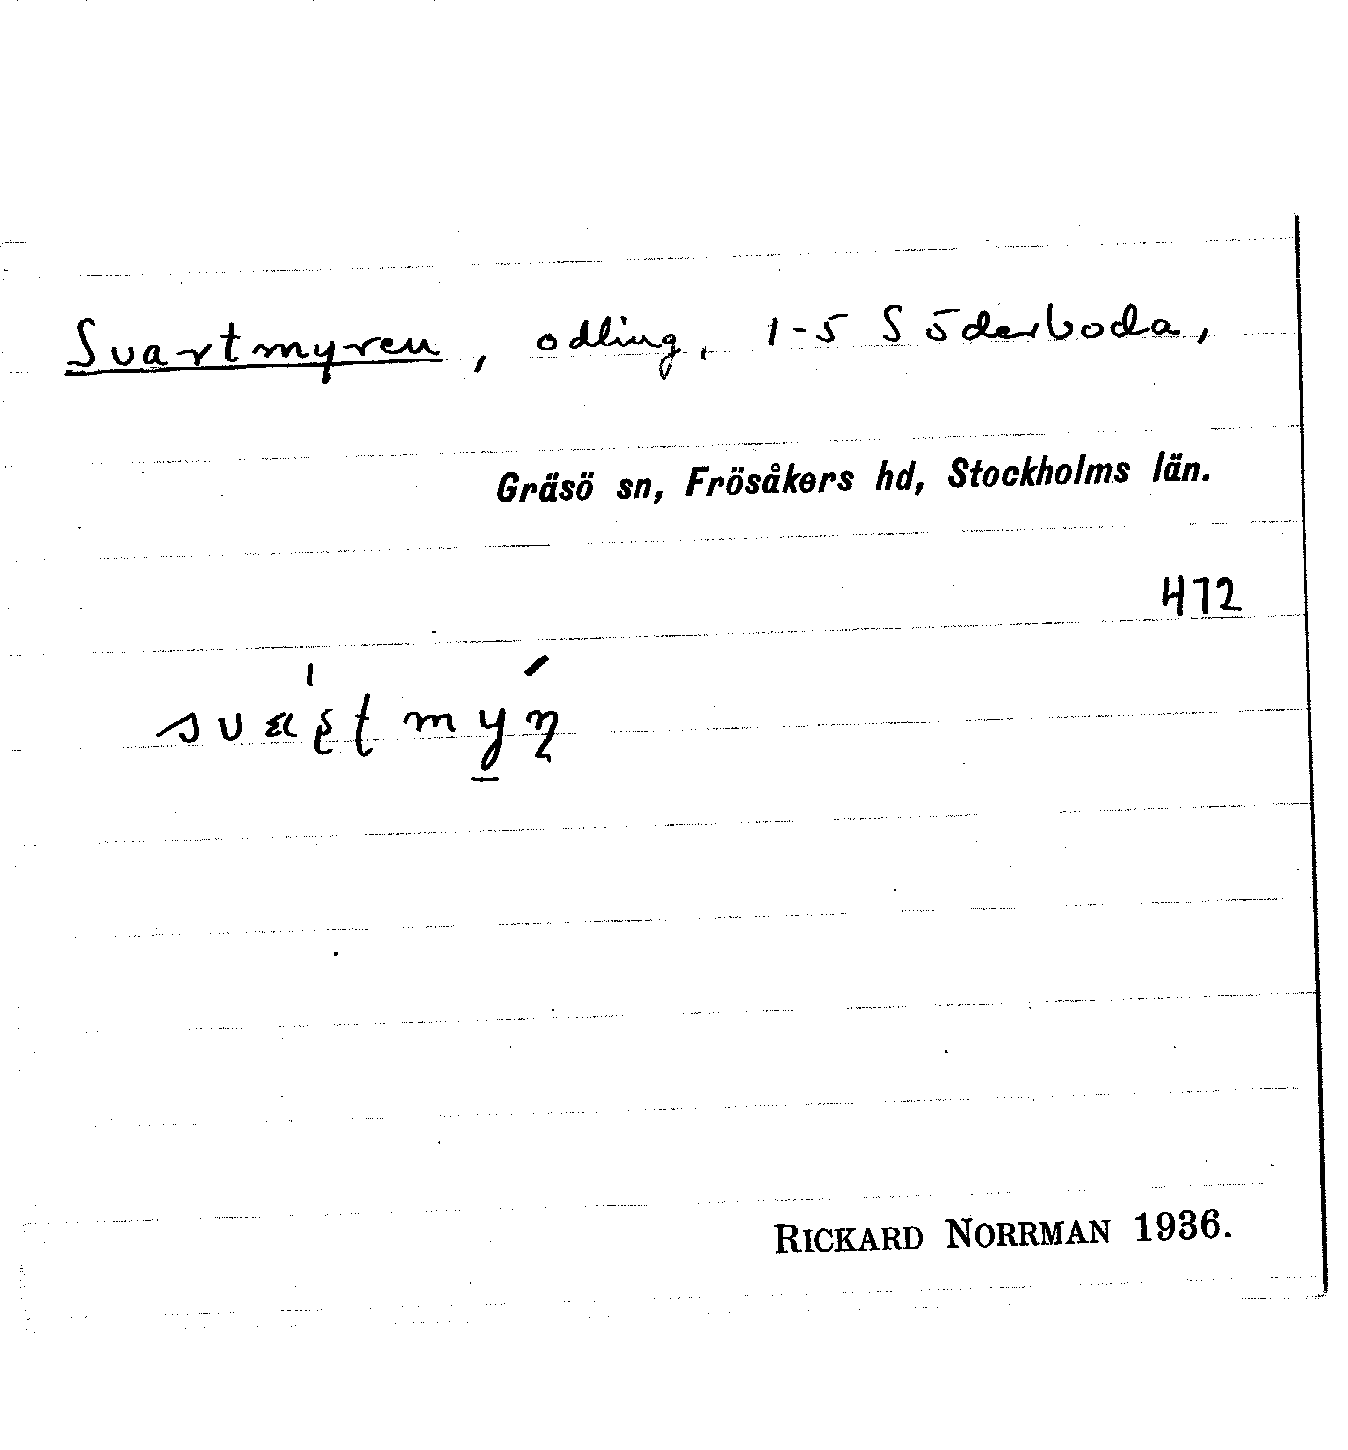 Svartmyren, odling, 1-5 Söderboda,
Gräsö sn, Frösåkers hd, Stockholms län.
472
RICKARD NORRMAN 1936.